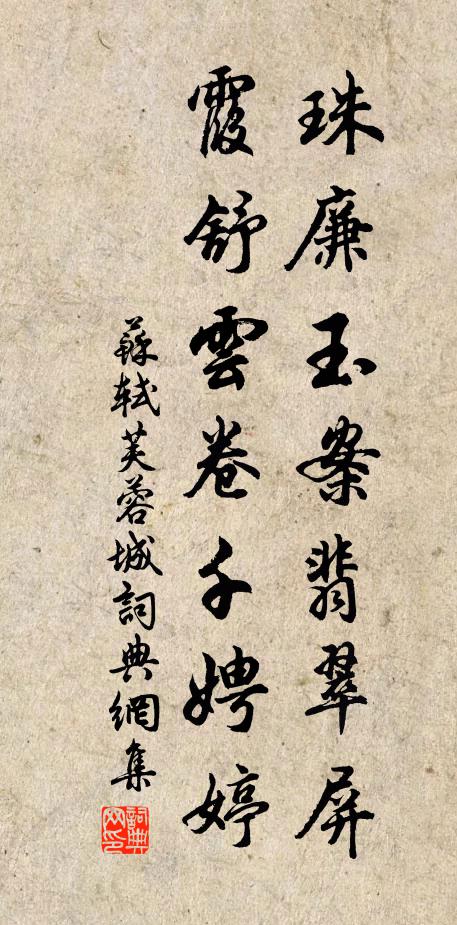 珠廉玉案翡翠屏
霞舒雲卷千娉婷
蘇軾芙蓉城詞典網集
詞典網印